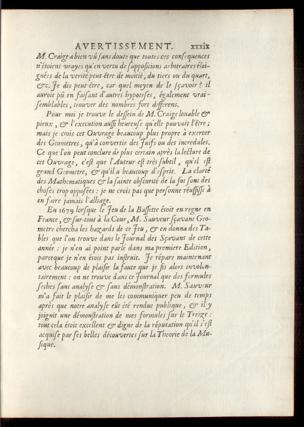 AVERTISSEMENT. xxxix
M. Craige a bien vû sans doute que toutes ces consequences
n'étoient vrayes qu'en vertu de suppositions arbitraires éloi-
gnées de la verité peut-être de moitié, du tiers ou du quart,
&c. Je dis peut-être, car quel moyen de le sçavoir ? il
auroit pû en faisant d'autres hypoteses, également vrai-
semblables, trouver des nombres fort differens.
Pour moi je trouve le dessein de M. Craige louable &
pieux, & l'execution aussi heureuse qu'elle pouvoit l'être :
mais je crois cet Ouvrage beaucoup plus propre à exercer
des Geometres, qu'à convertir des Juifs ou des incredules.
Ce que l'on peut conclure de plus certain après la lecture de
cet Ouvrage, c'est que l'Auteur est très subtil, qu'il est
grand Geometre, & qu'il a beaucoup d'esprit. La clarté
des Mathematiques & la sainte obscurité de la foi sont des
choses trop opposées : je ne crois pas que personne réussisse à
en faire jamais l'alliage.
En 1679 lorsque le Jeu de la Bassette étoit en regne en
France, & sur-tout à la Cour, M. Sauveur sçavant Geo-
metre chercha les hazards de ce Jeu, & en donna des Ta-
bles que l'on trouve dans le Journal des Sçavans de cette
année : je n'en ai point parlé dans ma premiere Edition,
parceque je n'en étois pas instruit. Je répare maintenant
avec beaucoup de plaisir la faute que je fis alors involon-
tairement : on ne trouve dans ce Journal que des formules
seches sans analyse & sans démonstration. M. Sauveur
m'a fait le plaisir de me les communiquer peu de temps
après que notre analyse eût été rendue publique, & il y
joignit une démonstration de mes formules sur le Treize :
tout cela étoit excellent & digne de la réputation qu'il s'est
acquise par ses belles découvertes sur la Theorie de la Mu-
sique.